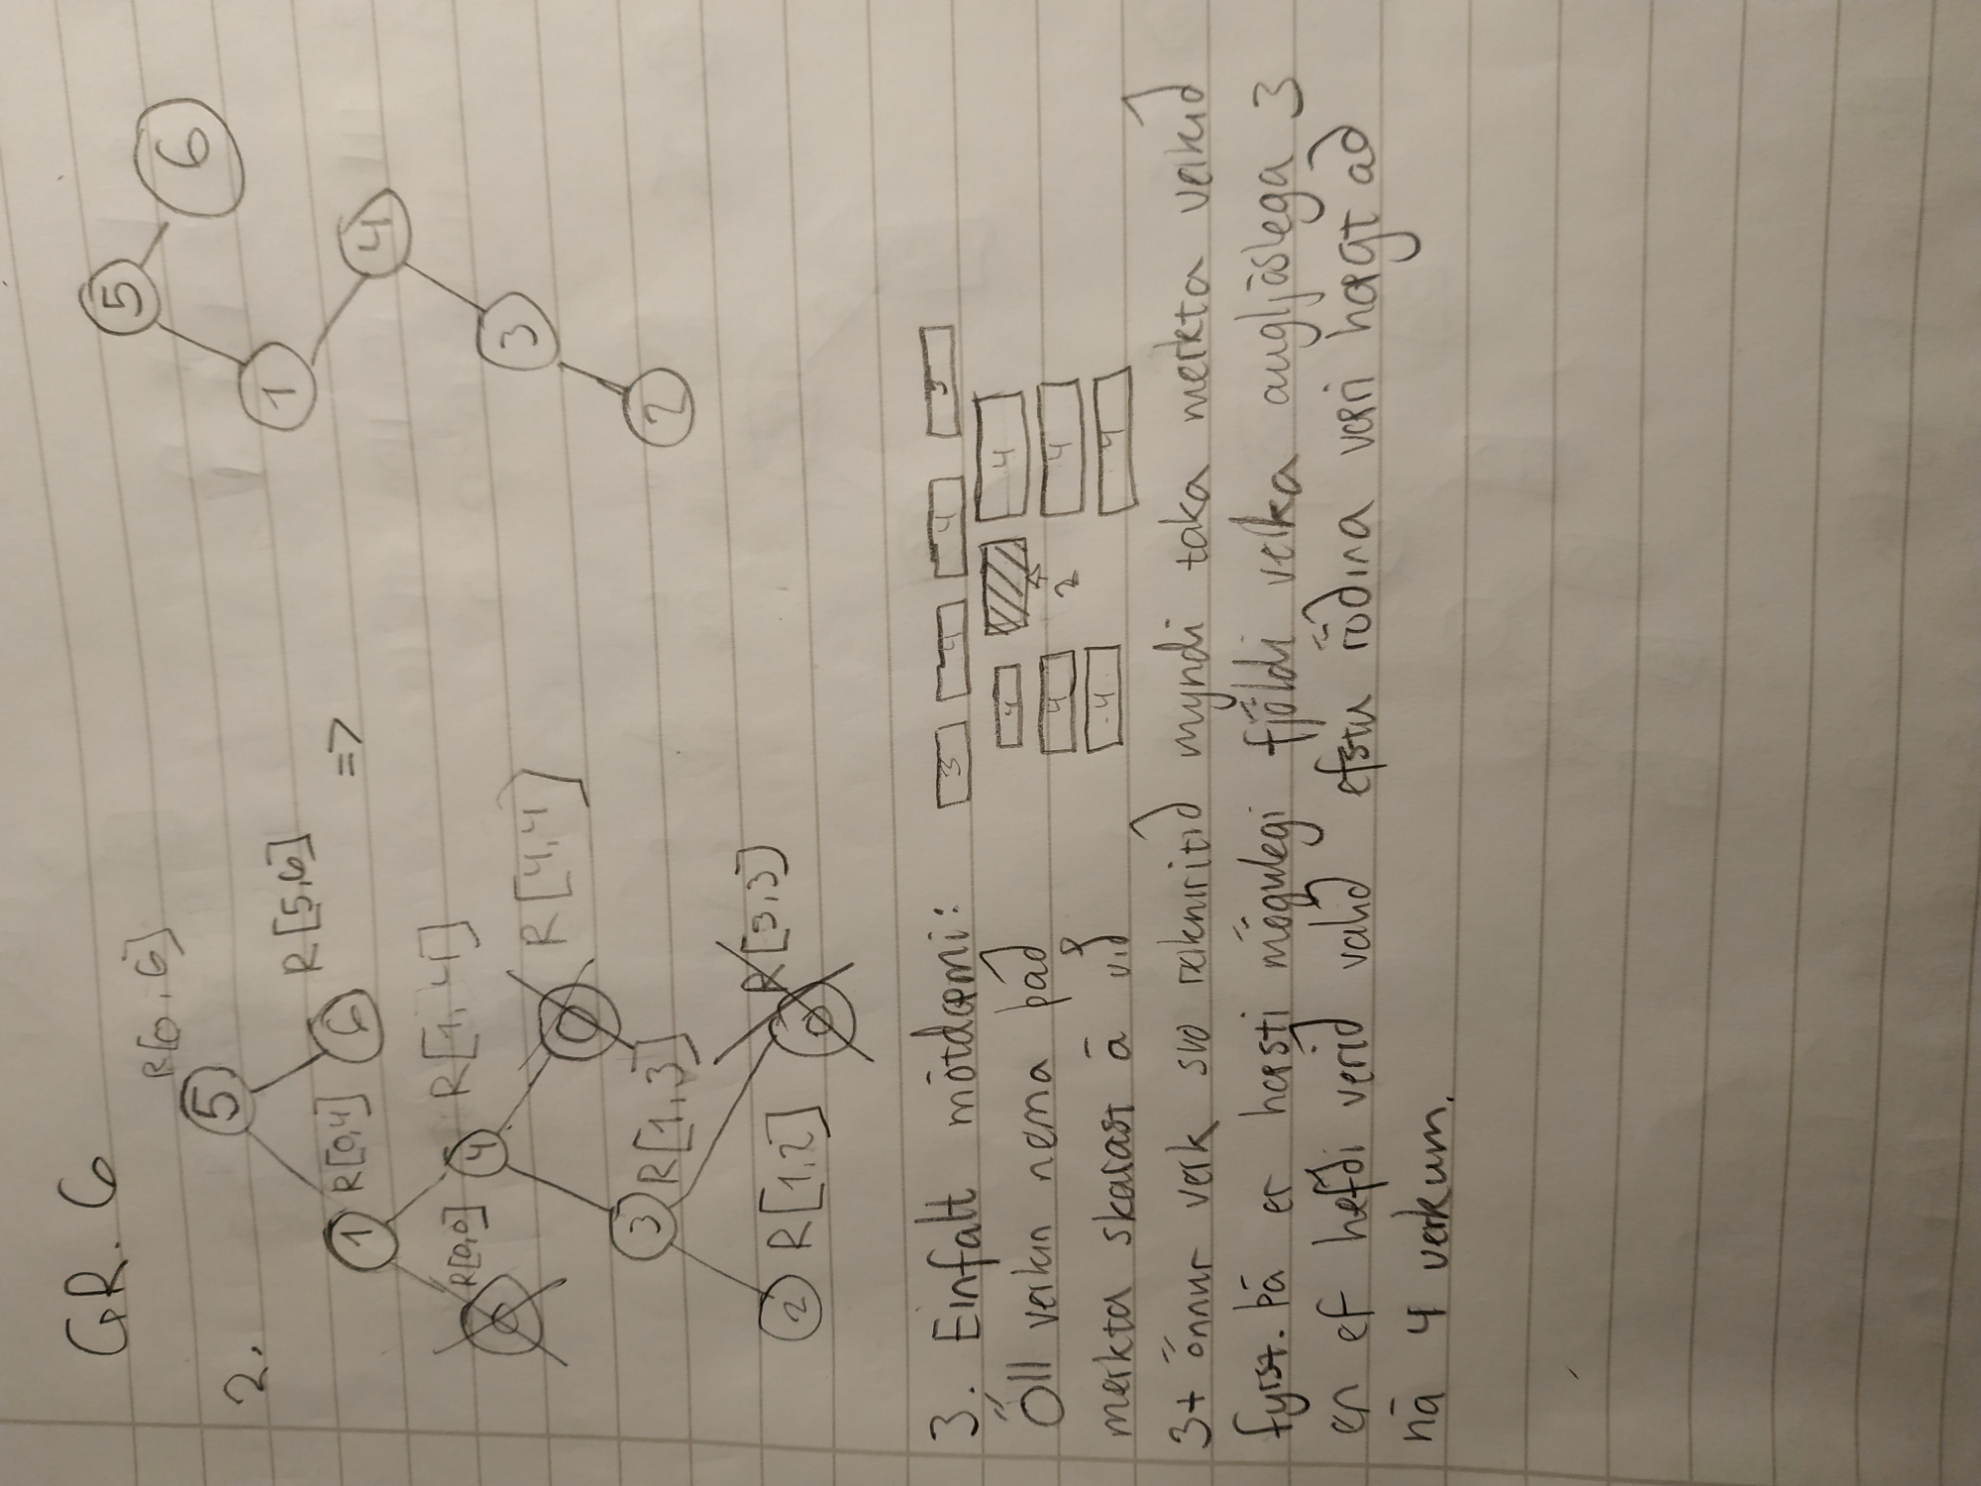 GR. 6
2.
R[0,6]
5
1 R[0,4] 6 R[5,6] =>
0 R[0,0] 4 R[1,4]
0 R[4,4]
3 R[1,3]
2 R[1,2] 0 R[3,3]
5
6
1
4
3
2
3. Einfalt mótdæmi: 3 4 4 3
Öll verkin nema það 4 4
merkta skarast á við 4 2 4
4 4
3+ önnur verk svo reikniritið myndi taka merkta verkið
fyrst. Þá er hæsti mögulegi fjöldi verka augljóslega 3
en ef hefði verið valið efstu röðina væri hægt að
ná 4 verkum.